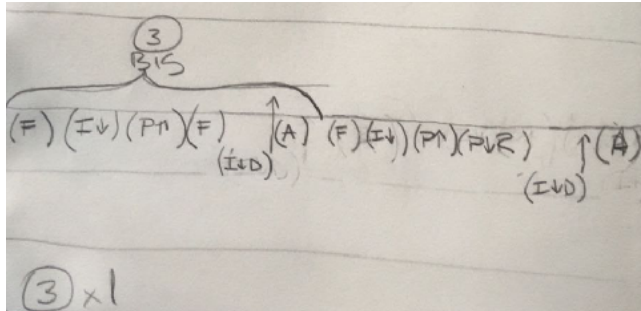 ③
BIS
(F) (I↓) (P↑) (F) ↑ (A) (F) (I↓) (P↑) (P↓R) ↑ (A)
(I↓D) (I↓D)
③ x 1